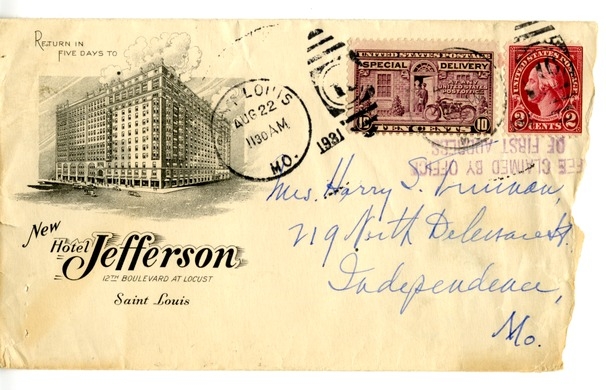 RETURN IN
FIVE DAYS TO
SAINT LOUIS
AUG 22
11 30 AM
MO.
1931
UNITED STATES POSTAGE
SPECIAL DELIVERY
AT ANY
UNITED STATES
POST OFFICE
10 TEN CENTS 10
UNITED STATES POSTAGE
2 CENTS 2
FEE CLAIMED BY OFFICE
OF FIRST ADDRESS
Mrs. Harry S. Truman,
219 North Delaware St.
Independence,
Mo.
New
Hotel Jefferson
12TH BOULEVARD AT LOCUST
Saint Louis